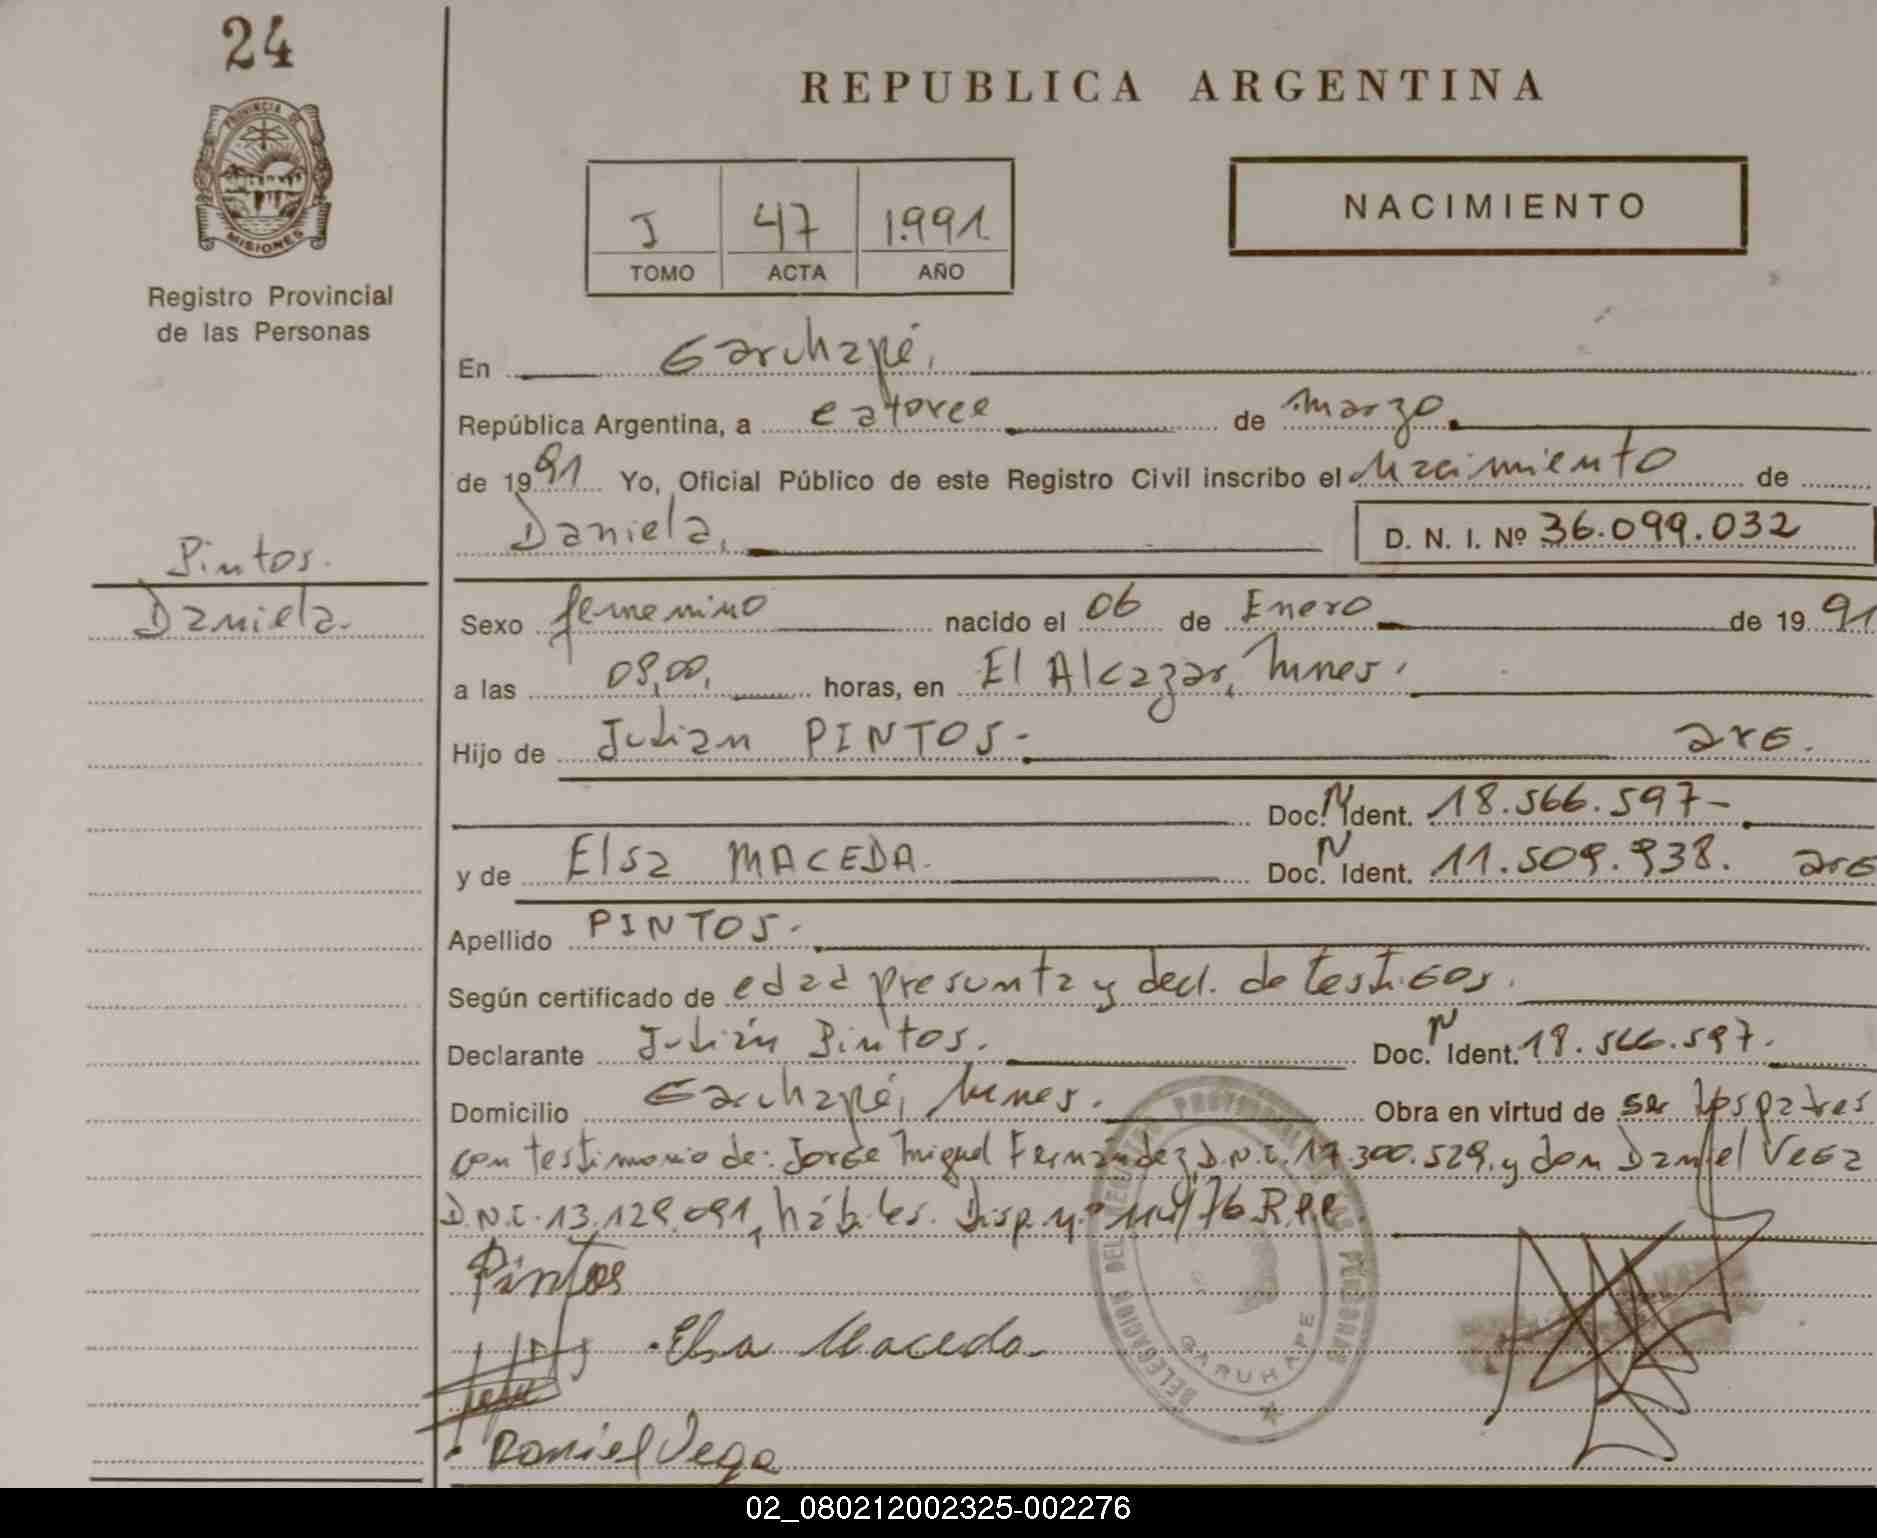 24
REPUBLICA ARGENTINA
PROVINCIA DE
MISIONES
Registro Provincial
de las Personas
J 47 1.991
TOMO ACTA AÑO
NACIMIENTO
En Garuhapé,
República Argentina, a catorce de marzo
de 1991 Yo, Oficial Público de este Registro Civil inscribo el Nacimiento de
Daniela, D. N. I. Nº 36.099.032
Pintos.
Daniela.
Sexo femenino nacido el 06 de Enero de 1991
a las horas, en El Alcazar, Mnes.
Hijo de Julian PINTOS.- arg.
Doc. N Ident. 18.566.597-
y de Elsa MACEDA. Doc. N Ident. 11.509.938. arg
Apellido PINTOS.
Según certificado de edad presunta y decl. de testigos.
Declarante Julián Pintos. Doc. N Ident. 18.566.597.
Domicilio Garuhapé, Mnes. Obra en virtud de ser los padres
con testimonio de: Jorge Miguel Fernández, D.N.I. 17.300.529. y don Daniel Vega
D.N.I. 13.129.091, hábiles. Disp. Nº 114/76 R.P.P.
Pintos
Elsa Maceda
Daniel Vega
DELEGACION DEL REGISTRO PROVINCIAL DE LAS PERSONAS
GARUHAPE
02_080212002325-002276